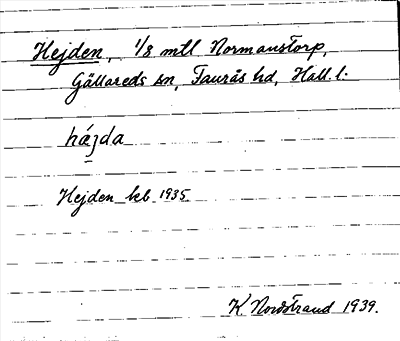 Hejden, 1/8 mtl Normanstorp,
Gällareds sn, Faurås hd, Hall. l.
háȝda
Hejden beb 1935.
K. Nordstrand 1939.